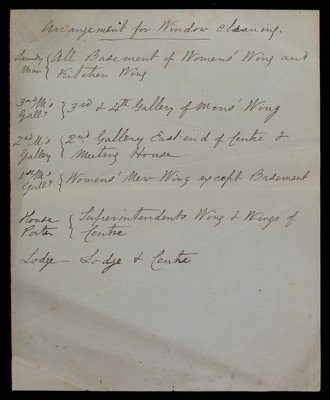 Arrangement for Window Cleaning.
Laundry Man { All Basement of Womens' Wing and
Kitchen Wing
3rd M's Gally } 3rd & 4th Gallery of Mens' Wing
2nd M's Gallery { 2nd Gallery East end of Centre &
Meeting House
1st M's Gally { Womens' New Wing except Basement
House Porter { Superintendents Wing & Wings of
Centre
Lodge – Lodge & Centre